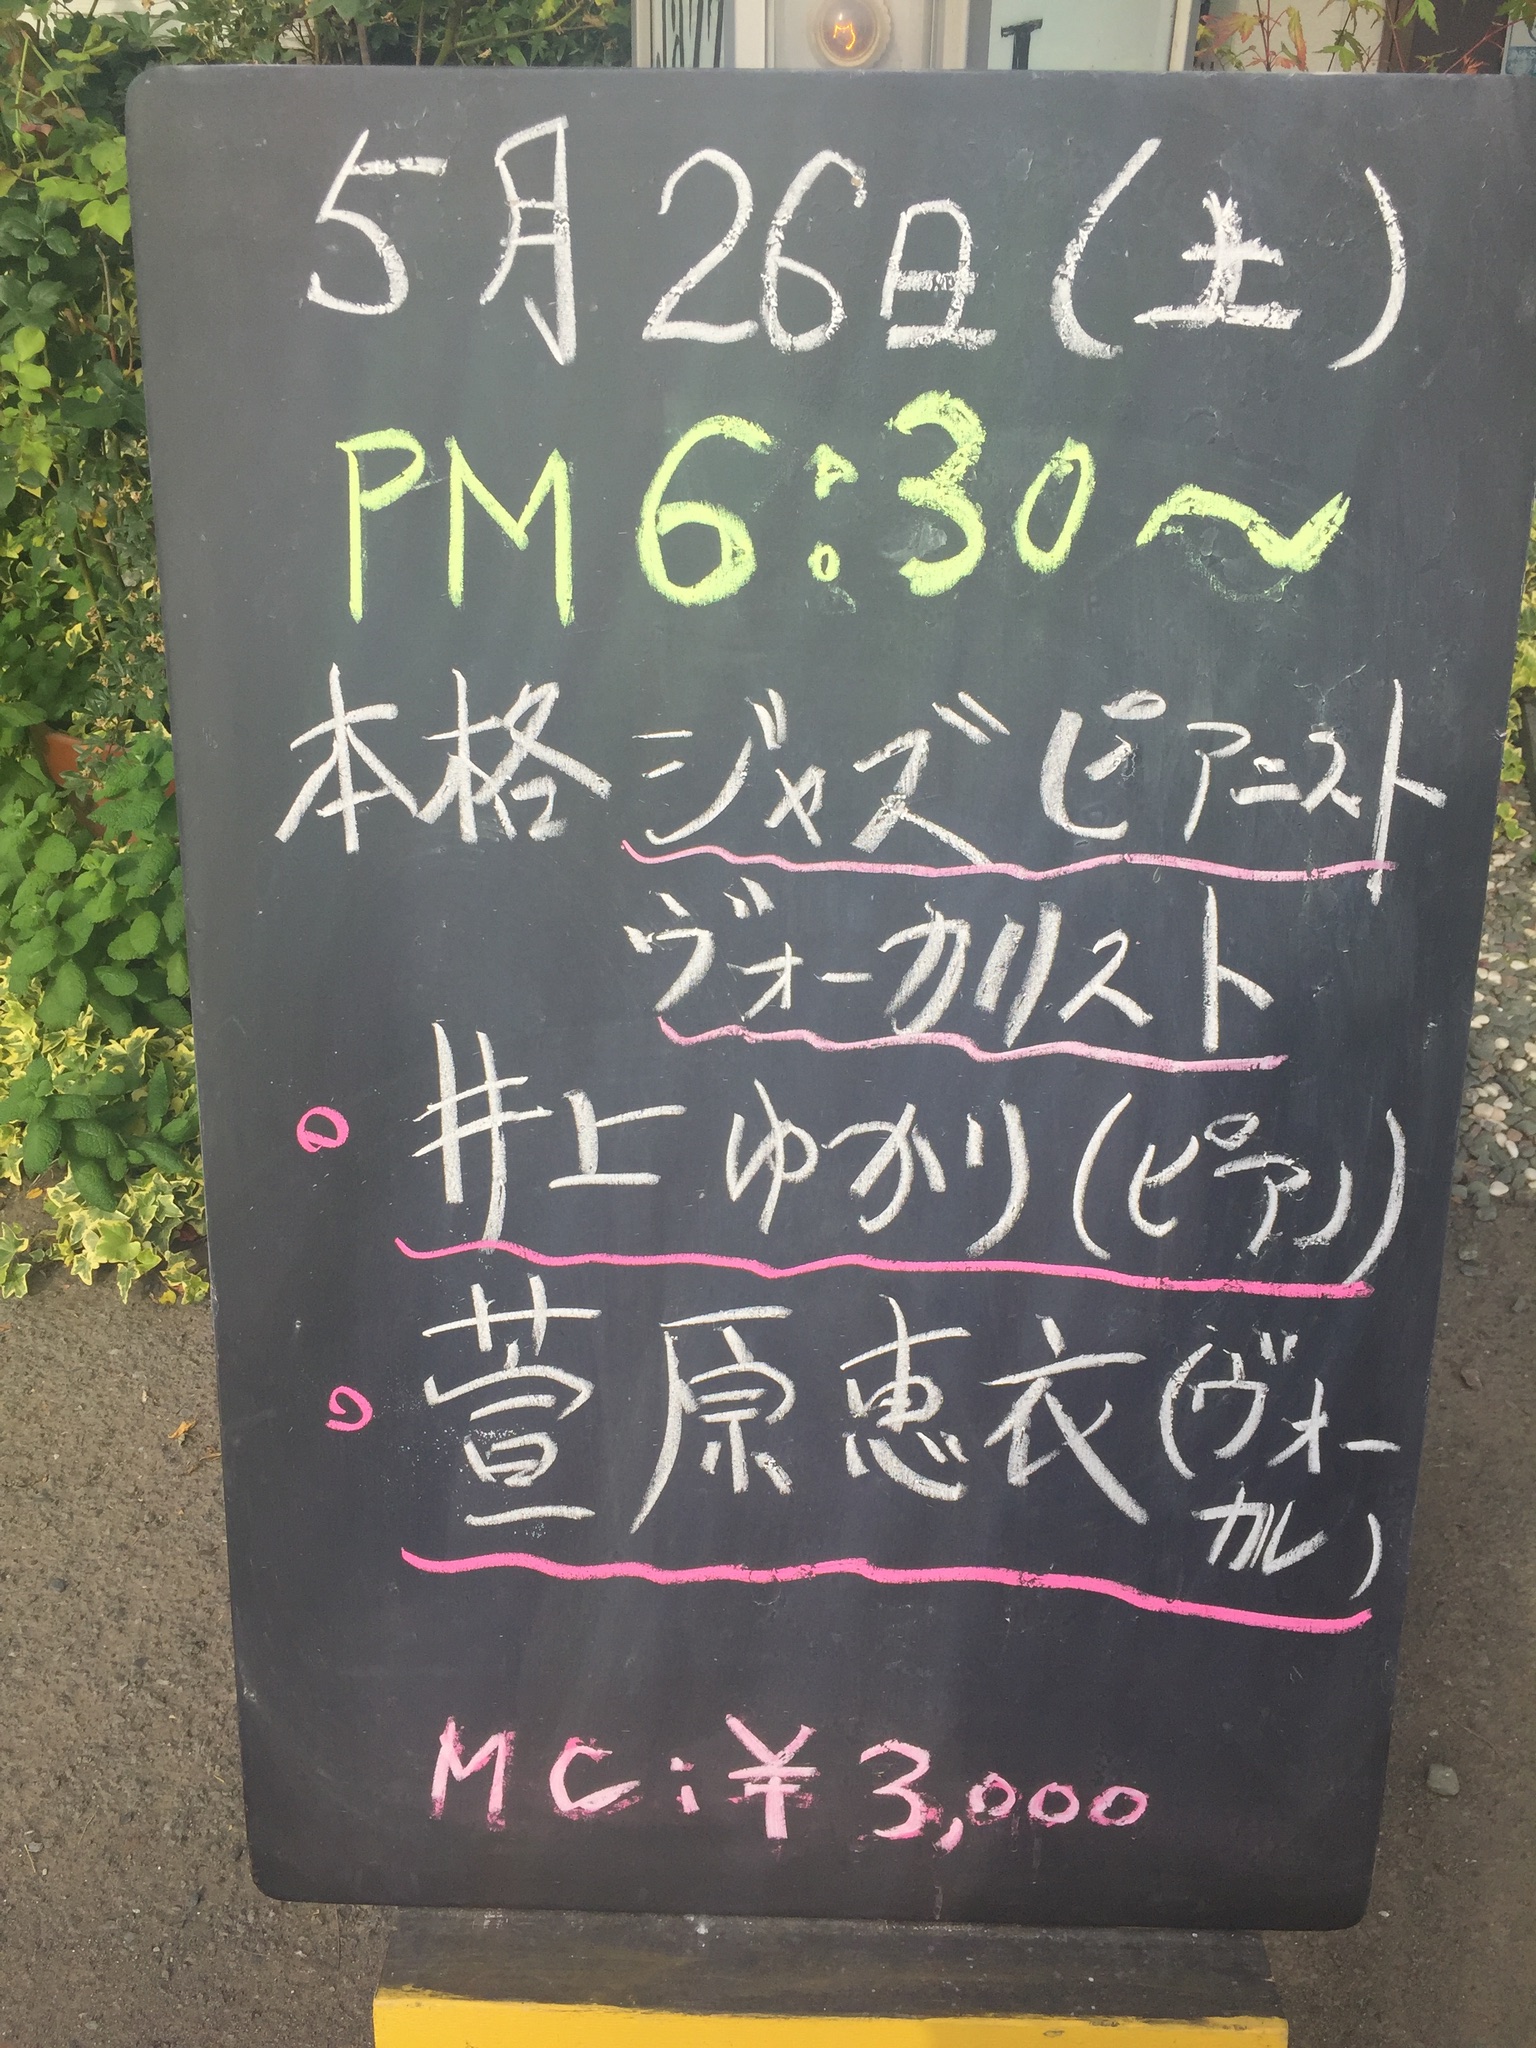 5月26日(土)
PM6:30〜
本格ジャズピアニスト
ヴォーカリスト
井上ゆかり(ピアノ)
萱原恵衣(ヴォー
カル)
MC:¥3,000